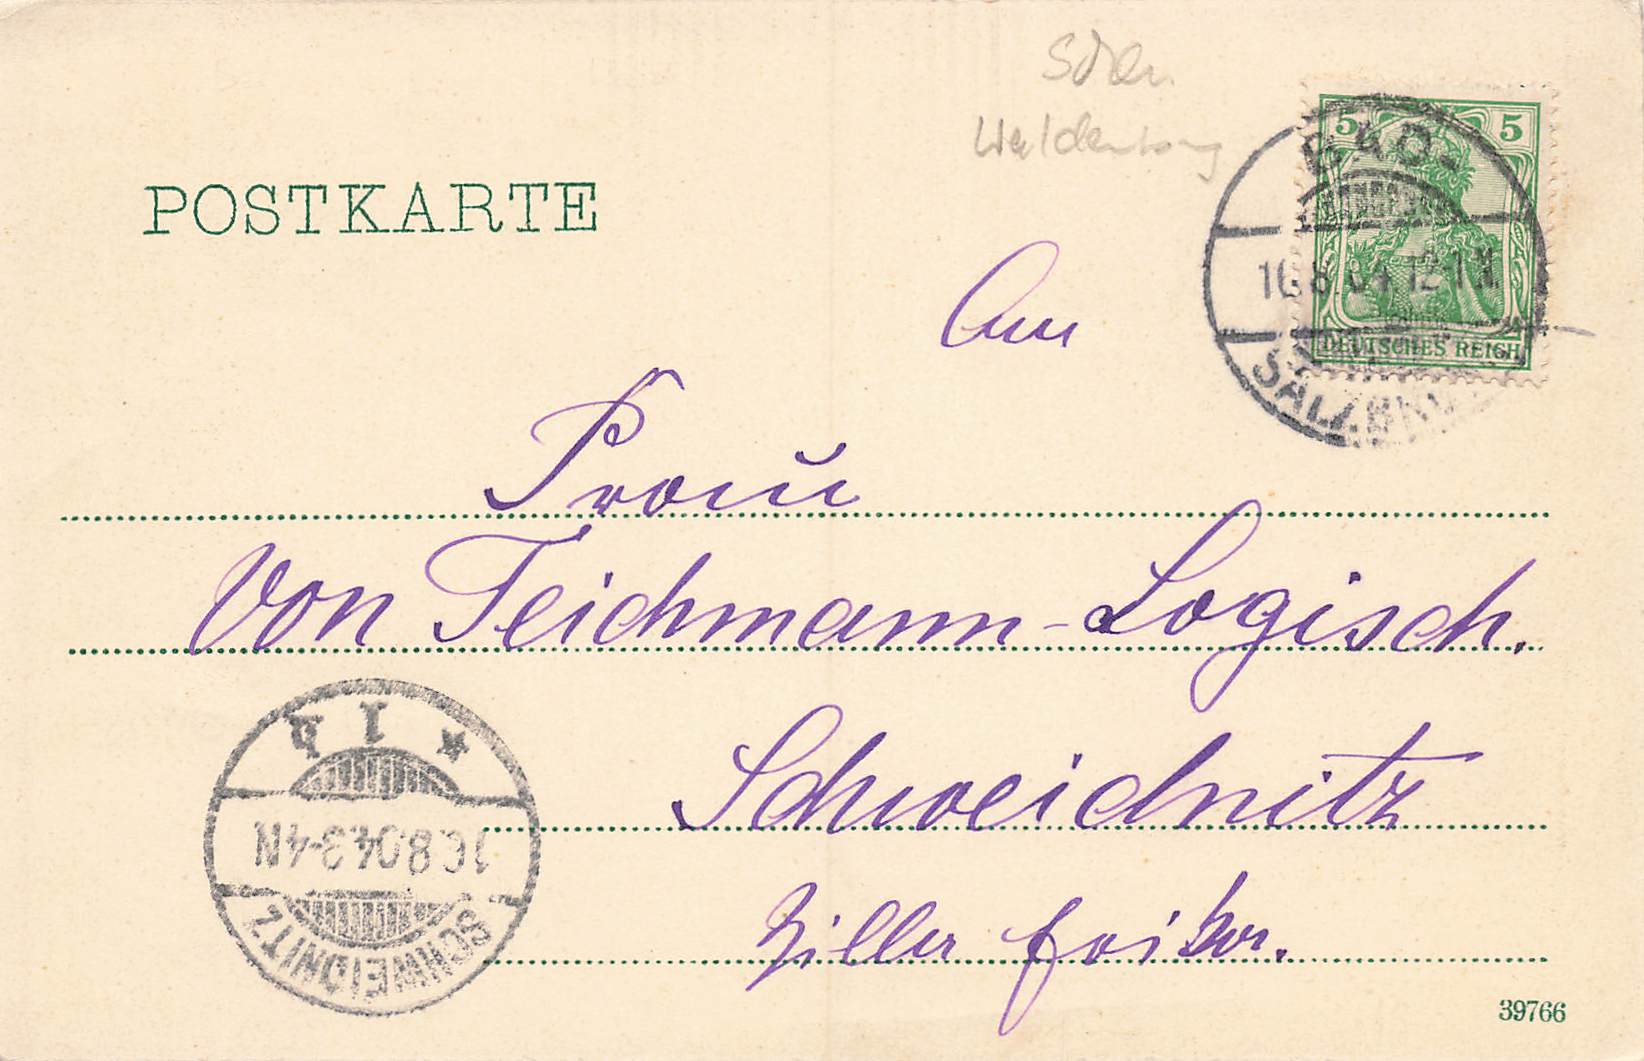 Schles.
Waldenburg
5 5
BAD-
16.8.04.12-1N
SALZBRUNN
DEUTSCHES REICH
POSTKARTE
An
Frau
von Teichmann-Logisch.
Schweidnitz
SCHWEIDNITZ
16.8.04.3-4N
* 1 b
39766